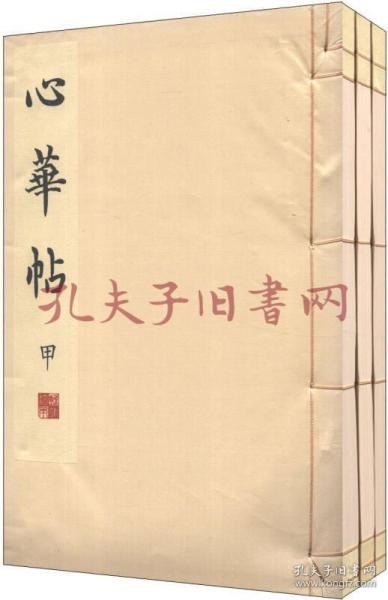 心華帖
甲
孔夫子旧書网
孔夫子旧书网